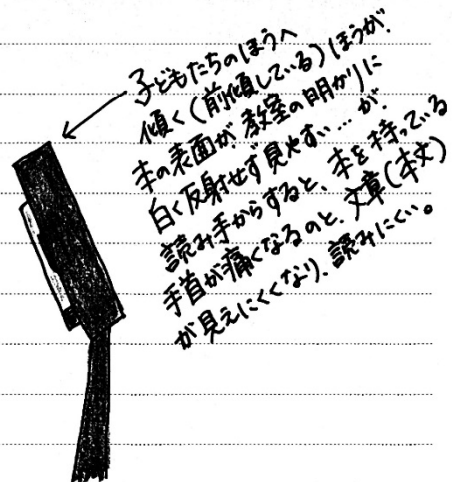 子どもたちのほうへ
傾く(前傾している)ほうが、
本の表面が教室の明かりに
白く反射せず見やすい…が、
読み手からすると、本を持っている
手首が痛くなるのと、文章(本文)
が見えにくくなり、読みにくい。